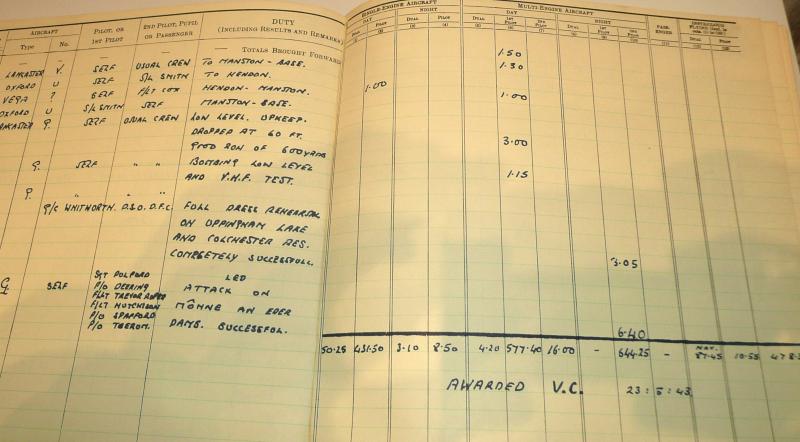 AIRCRAFT
Type No.
PILOT, OR 1ST PILOT
2ND PILOT, PUPIL OR PASSENGER
DUTY
(INCLUDING RESULTS AND REMARKS)
SINGLE-ENGINE AIRCRAFT
DAY NIGHT
DUAL PILOT DUAL PILOT
(1) (2) (3) (4)
MULTI-ENGINE AIRCRAFT
DAY NIGHT
DUAL 1ST PILOT 2ND PILOT DUAL 1ST PILOT 2ND PILOT
PASSENGER
DUAL PILOT
— — — — — TOTALS BROUGHT FORWARD
LANCASTER V. SELF USUAL CREW TO MANSTON - BASE. 1·50
OXFORD U SELF S/L SMITH TO HENDON. 1·30
VEGA ? SELF F/LT COX HENDON - MANSTON. 1·00
OXFORD U S/L SMITH SELF MANSTON - BASE. 1·00
LANCASTER G. SELF USUAL CREW LOW LEVEL. UPKEEP.
DROPPED AT 60 FT.
GOOD RUN OF 600 YARDS 3·00
G. SELF " " BOMBING LOW LEVEL
AND V.H.F TEST. 1·15
G. " " "
G/C WHITWORTH. D.S.O. D.F.C. FULL DRESS REHEARSAL
ON UPPINGHAM LAKE
AND COLCHESTER RES.
COMPLETELY SUCCESSFULL. 3·05
G SELF SGT PULFORD LED
P/O DEERING ATTACK ON
F/LT TREVOR ROPER
F/LT HUTCHISON MÖHNE AN EDER
P/O SPAFFORD
P/O TAERUM. DAMS. SUCCESSFUL. 6·40
50·25 431·50 3·10 8·50 4·20 577·40 16·00 - 644·25 - 87·45 10·55
AWARDED V.C. 23 : 5 : 43.